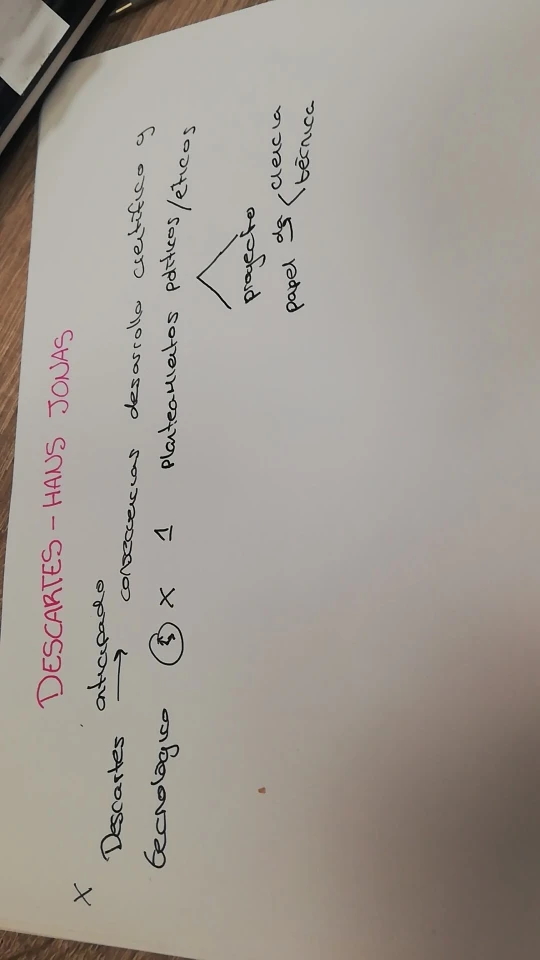 DESCARTES - HANS JONAS
X Descartes anticipado → consecuencias desarrollo científico y
tecnológico X 1 planteamientos políticos/éticos
proyecto
papel de ciencia
técnica